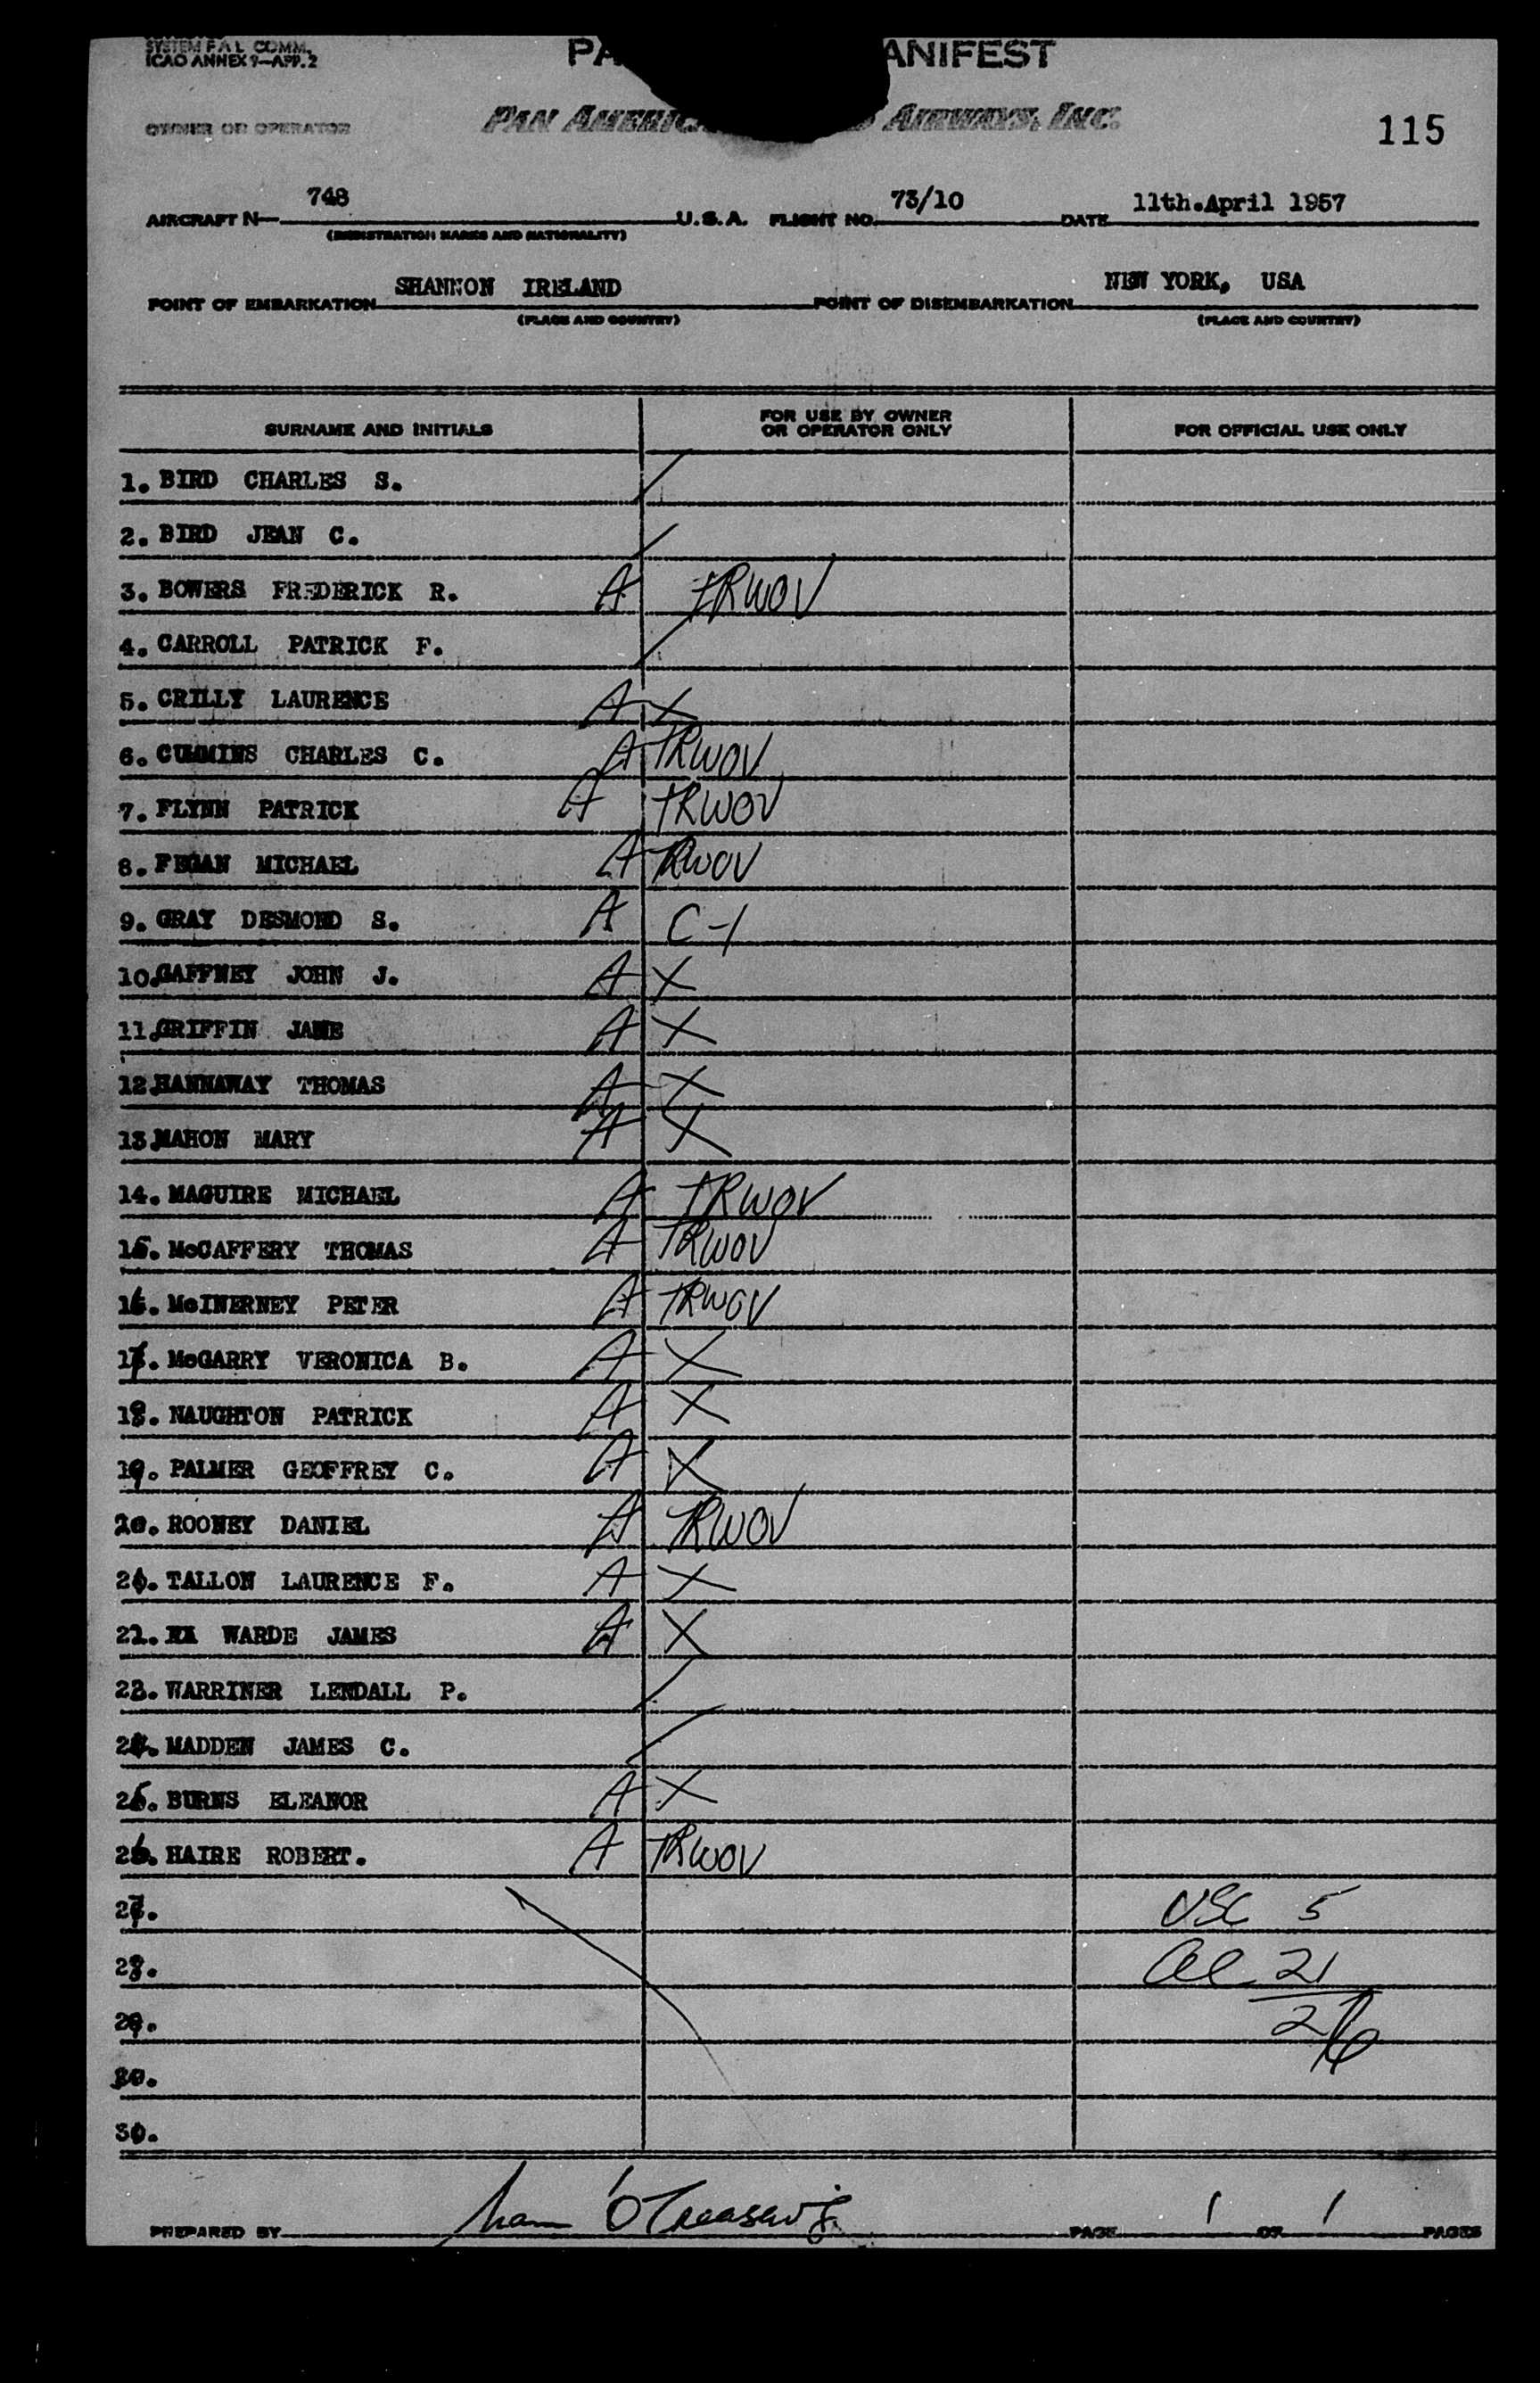 SYSTEM F.A.L. COMM.
ICAO ANNEX 9—APP. 2
PA ANIFEST
OWNER OR OPERATOR
PAN AMERIC D AIRWAYS, INC.
115
AIRCRAFT N— 748 U.S.A. FLIGHT NO. 73/10 DATE 11th.April 1957
(REGISTRATION MARKS AND NATIONALITY)
POINT OF EMBARKATION SHANNON IRELAND POINT OF DISEMBARKATION NEW YORK, USA
(PLACE AND COUNTRY) (PLACE AND COUNTRY)
SURNAME AND INITIALS FOR USE BY OWNER OR OPERATOR ONLY FOR OFFICIAL USE ONLY
1. BIRD CHARLES S.
2. BIRD JEAN C.
3. BOWERS FREDERICK R. A TRWOV
4. CARROLL PATRICK F.
5. CRILLY LAURENCE A X
6. CUMMINS CHARLES C. A TRWOV
7. FLYNN PATRICK A TRWOV
8. FEGAN MICHAEL A TRWOV
9. GRAY DESMOND S. A C-1
10. GAFFNEY JOHN J. A X
11. GRIFFIN JANE A X
12. HANNAWAY THOMAS A X
13. MAHON MARY A X
14. MAGUIRE MICHAEL A TRWOV
15. McCAFFERY THOMAS A TRWOV
16. McINERNEY PETER A TRWOV
17. McGARRY VERONICA B. A X
18. NAUGHTON PATRICK A X
19. PALMER GEOFFREY C. A X
20. ROONEY DANIEL A TRWOV
21. TALLON LAURENCE F. A X
22. XX WARDE JAMES A X
23. WARRINER LENDALL P.
24. MADDEN JAMES C.
25. BURNS ELEANOR A X
26. HAIRE ROBERT. A TRWOV
27. USC 5
28. al 21
29. 26
30.
30.
PREPARED BY PAGE 1 OF 1 PAGES